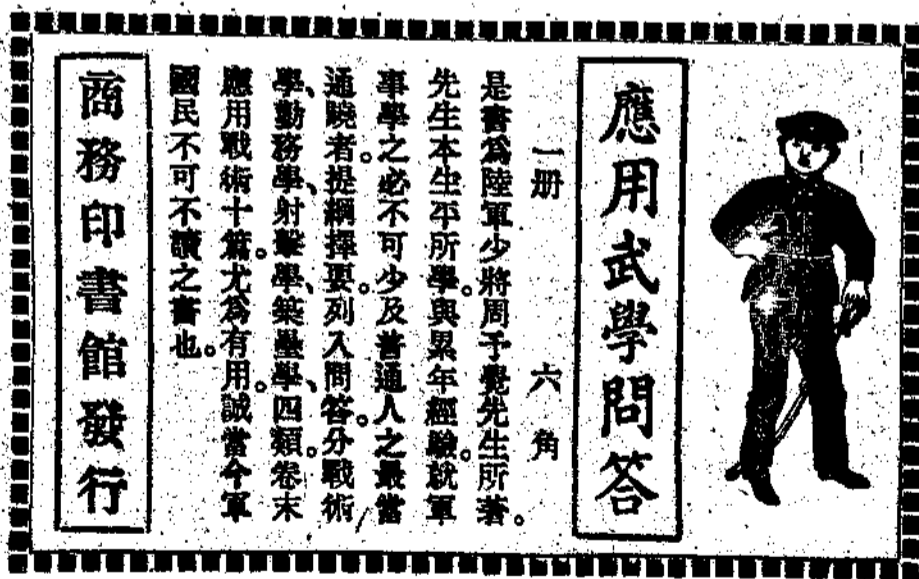 應用武學問答
一册 六角
是書爲陸軍少將周予覺先生所著。
先生本生平所學。與累年經驗。就軍
事學之必不可少及普通人之最當
通曉者。提綱擇要。列入問答。分戰術
學、勤務學、射擊學、築壘學、四類。卷末
應用戰術十篇。尤爲有用。誠當今軍
國民不可不讀之書也。
商務印書館發行